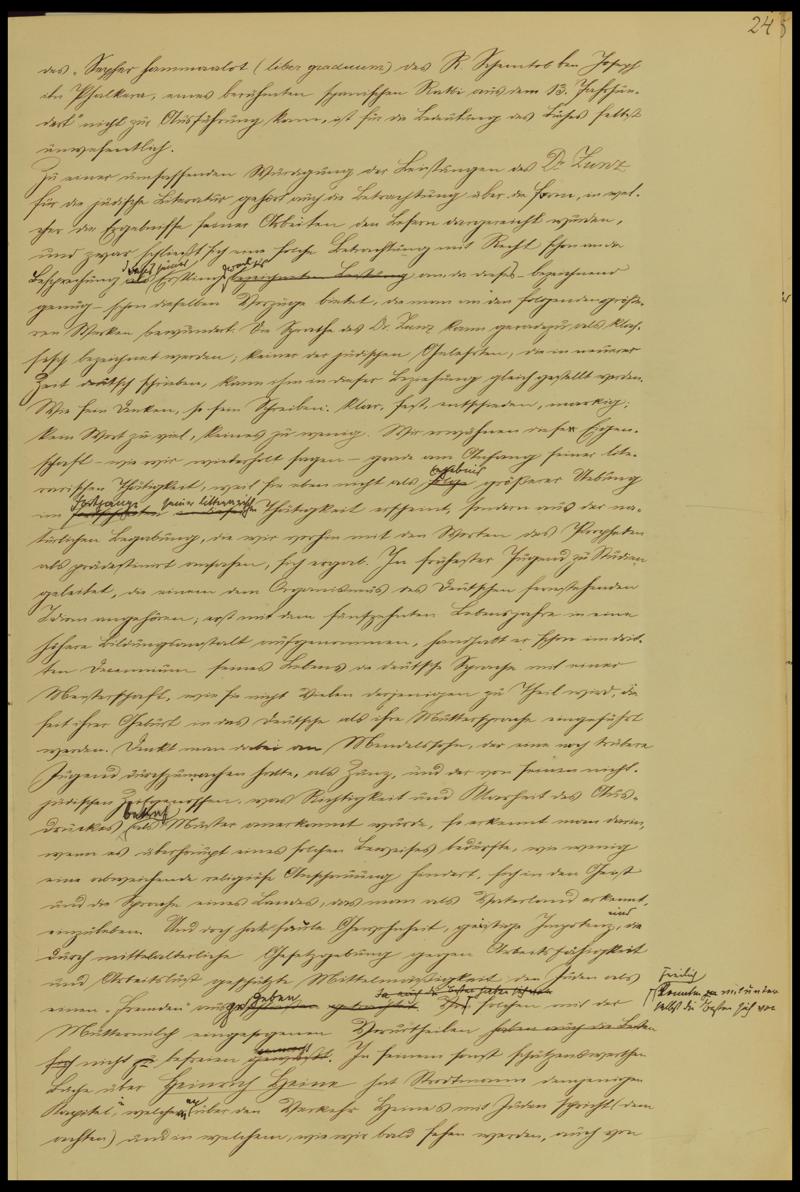 24
des „Sepher hammaalot (liber graduum) des R Schemtob ben Joseph
ibn Phalkera, eines berühmten spanischen Rabbi aus dem 13. Jahrhun-
dert" nicht zur Ausführung kam, ist für die Bedeutung des Buches selbst
unwesentlich.
Zu einer umfassenden Würdigung der Leistungen des Dr. Zunz
für die jüdische Literatur gehört auch die Betrachtung über die Form, in wel-
cher die Ergebnisse seiner Arbeiten den Lesern dargereicht wurden,
und zwar schließt sich eine solche Betrachtung mit Recht schon an die
Besprechung dieses seines Erstlings gerade bezeichneten Leistung an, da dieses – bezeichnend
genug – schon dieselben Vorzüge bietet, die man in den folgenden größe-
ren Werken bewundert. Die Sprache des Dr. Zunz kann geradezu als klas-
sisch bezeichnet werden; keiner der jüdischen Gelehrten, die in neuerer
Zeit deutsch schrieben, kann ihm in dieser Beziehung gleich gestellt werden.
Wie sein Denken, so sein Schreiben: klar, fest, entschieden, markig;
kein Wort zu viel, keines zu wenig. Wir erwähnen diese Eigen-
schaft – wie wir wiederholt sagen – grade am Anfang seiner lite-
rarischen Thätigkeit, weil sie eben nicht als Ergebnis größerer Uebung
im Fortgange seiner litterarischen Thätigkeit erscheint, sondern aus der na-
türlichen Begabung, die wir vorhin mit den Worten des Propheten
als prädestinirt ansahen, sich ergab. In frühester Jugend zu Studien
geleitet, die einem dem Organismus des Deutschen fernstehenden
Idiom angehören; erst mit dem fünfzehnten Lebensjahre in eine
höhere Bildungsanstalt aufgenommen, handhabt er schon im drit-
ten Decennium seines Lebens die deutsche Sprache mit einer
Meisterschaft, wie sie nicht Vielen derjenigen zu Theil wird, die
seit ihrer Geburt in das Deutsche als ihre Muttersprache eingeführt
werden. Denkt man dabei an Mendelssohn, der eine noch trübere
Jugend durchzumachen hatte, als Zunz, und der von seinen nicht-
jüdischen Zeitgenossen, was Richtigkeit und Klarheit des Aus-
druckes betraf als Muster anerkannt wurde, so erkennt man darin,
wenn es überhaupt eines solchen Beweises bedürfte, wie wenig
eine abweichende religiöse Anschauung hindert, sich in den Geist
und die Sprache eines Landes, das man als Vaterland erkennt,
einzuleben. Und doch hat faule Gewohnheit, geistige Impotenz, und die
durch mittelalterliche Gesetzgebung gegen Arbeitsfähigkeit
und Arbeitslust geschützte Mittelmäßigkeit den Juden als
einen „Fremden" ausgegeben Von solchen mit der
Freilich
Konnten mitunter
selbst die Besten sich von
Muttermilch eingesogenen Vorurtheilen haben auch die Besten
sich nicht zu befreien. In seinem sonst schätzenswerthen
Buche über Heinrich Heine hat Strodtmann demjenigen
Kapitel, in welchem er über den Verkehr Heine's mit Juden spricht (dem
achten) und in welchem, wie wir bald sehen werden, auch von